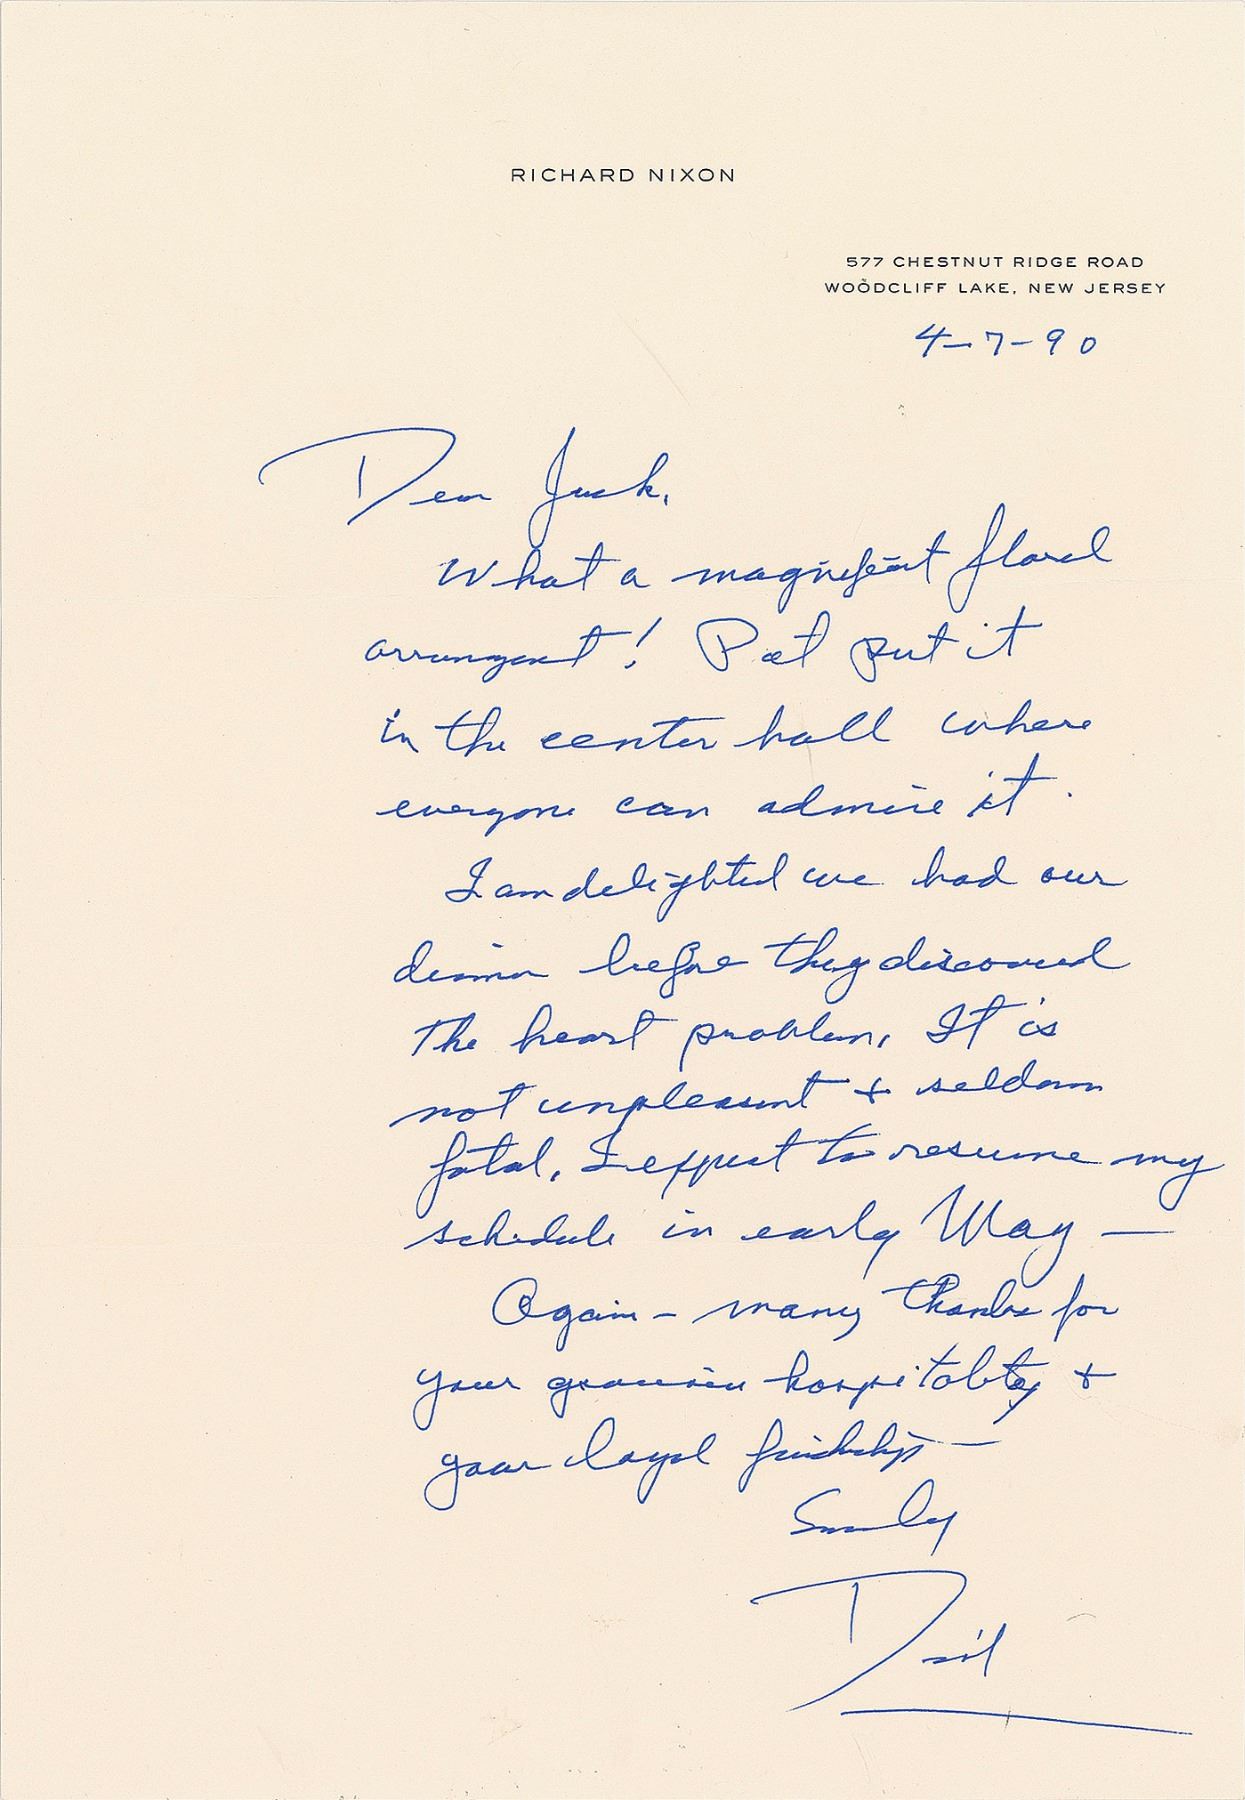 RICHARD NIXON
577 CHESTNUT RIDGE ROAD
WOODCLIFF LAKE, NEW JERSEY
4-7-90
Dear Jack,
What a magnificent floral
arrangement! Pat put it
in the center hall where
everyone can admire it.
I am delighted we had our
dinner before they discovered
the heart problem. It is
not unpleasant + seldom
fatal. I expect to resume my
schedule in early May —
Again - many thanks for
your gracious hospitality +
your loyal friendship —
Sincerely